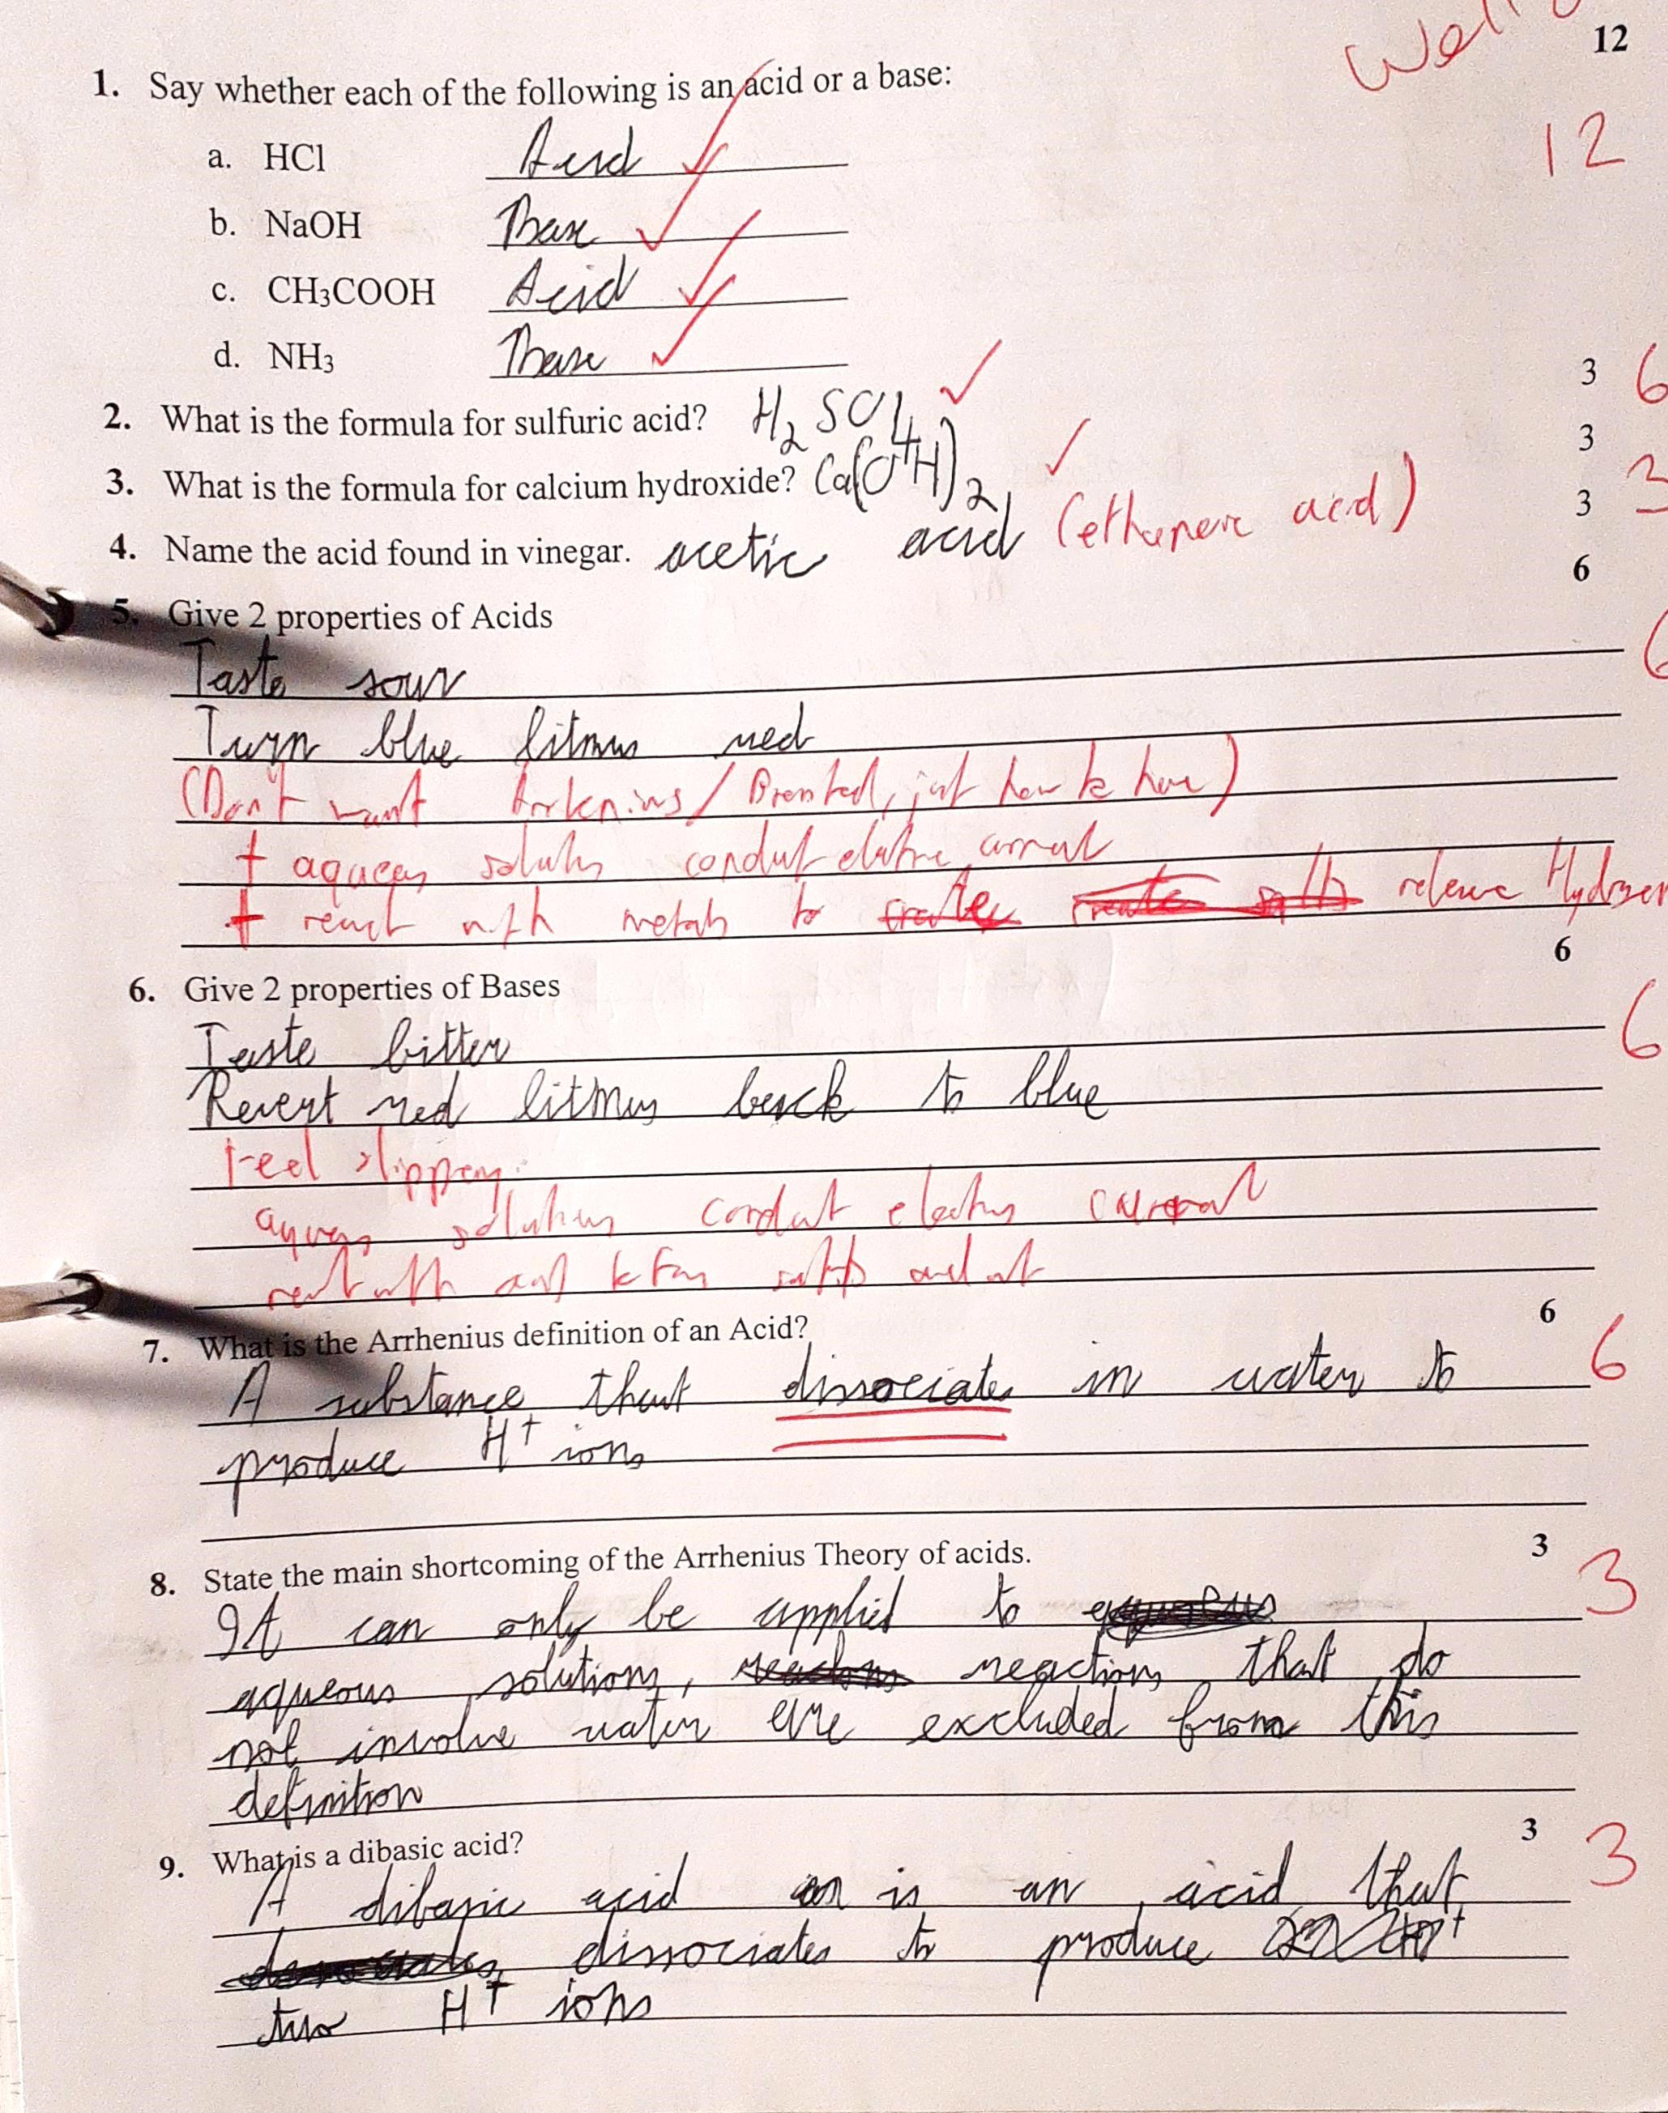 Well
12
1. Say whether each of the following is an acid or a base:
12
a. HCl Acid
b. NaOH Base
c. CH3COOH Acid
d. NH3 Base
3 6
2. What is the formula for sulfuric acid? H2SO4
3
3. What is the formula for calcium hydroxide? Ca(OH)2
3 3
4. Name the acid found in vinegar. acetic acid (ethanoic acid)
6
5. Give 2 properties of Acids
6
Taste sour
Turn blue litmus red
(Don't want Arrhenius/Bronsted, just how to how)
+ aqueous solutions conduct electric current
+ react with metals to release Hydrogen
6
6. Give 2 properties of Bases
6
Taste bitter
Revert red litmus back to blue
Feel slippery
aqueous solutions conduct electric current
react with acid to form salts and
6
7. What is the Arrhenius definition of an Acid?
6
A substance that dissociates in water to
produce H+ ions
3
8. State the main shortcoming of the Arrhenius Theory of acids.
3
It can only be applied to
aqueous solutions, reactions that do
not involve water are excluded from this
definition
3
9. What is a dibasic acid?
3
A dibasic acid is an acid that
dissociates to produce
two H+ ions